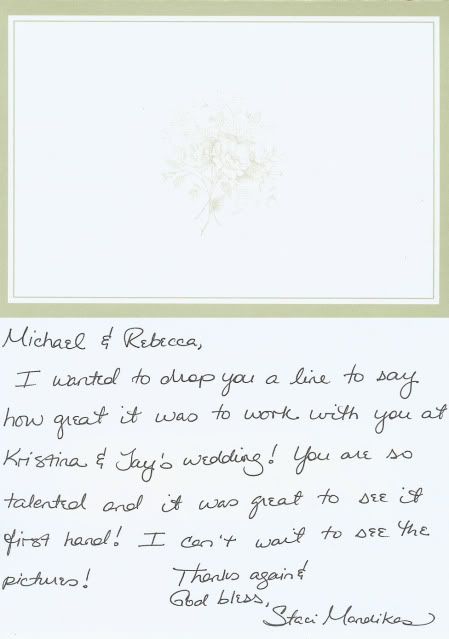 Michael & Rebecca,
I wanted to drop you a line to say
how great it was to work with you at
Kristina & Jay's wedding! You are so
talented and it was great to see it
first hand! I can't wait to see the
pictures!
Thanks again &
God bless,
Staci Mandikas